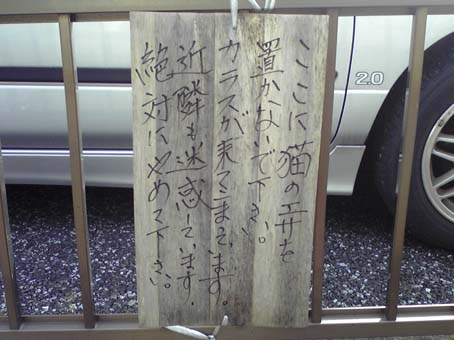 ここに猫のエサを
置かないで下さい。
カラスが来てこまっています。
近隣も迷惑しています。
絶対にやめて下さい。
2.0